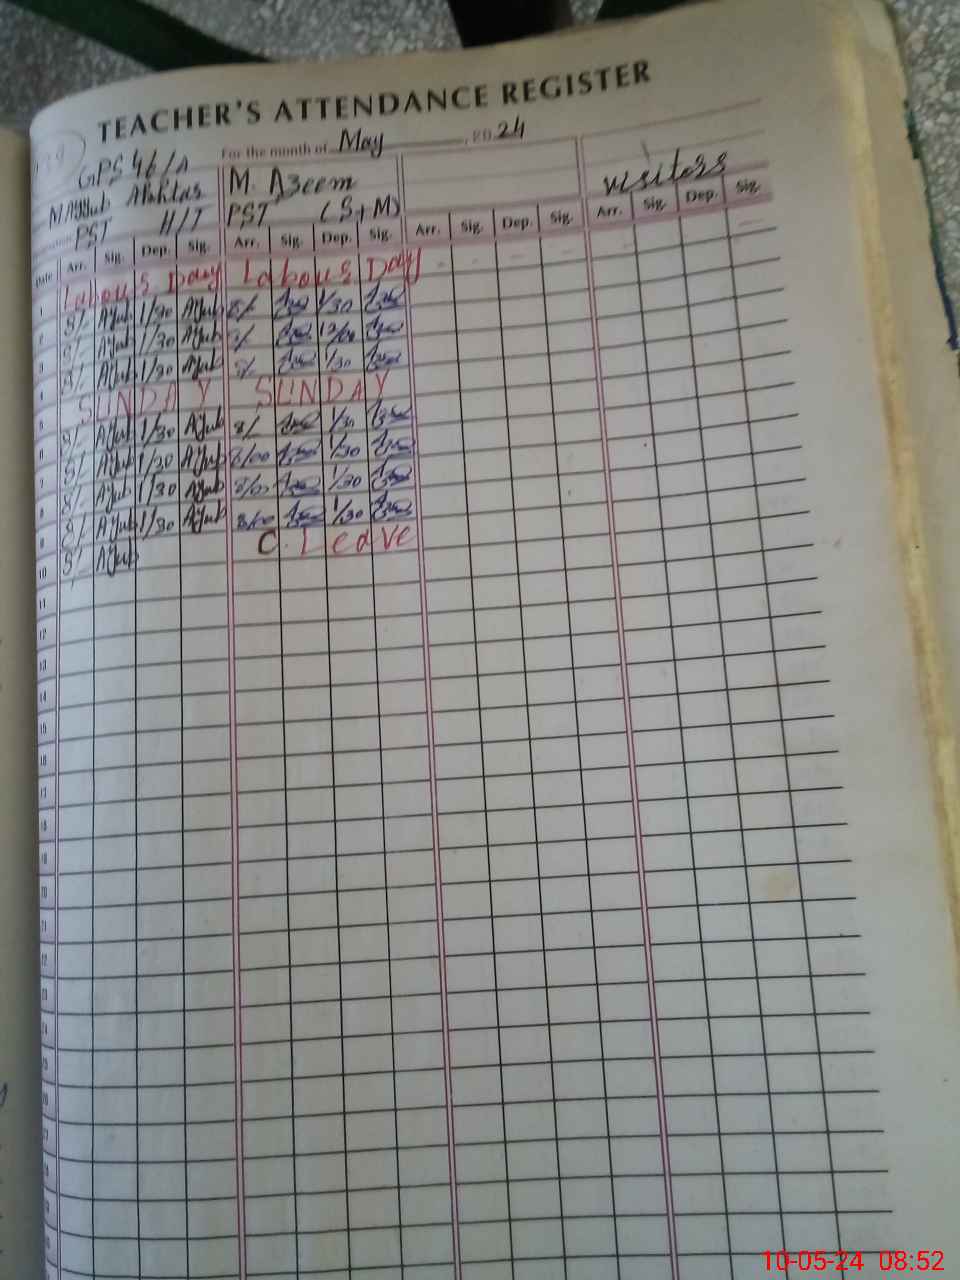 TEACHER'S ATTENDANCE REGISTER
For the month of May, 2024
GPS 46/A
M. Ayyub Akhtar M. Azeem visitors
PST H/T PST (S,M)
Date Arr. Sig. Dep. Sig. Arr. Sig. Dep. Sig. Arr. Sig. Dep. Sig. Arr. Sig. Dep. Sig.
1 Labour S Day Labour S Day
2 8/- Ayub 1/30 Ayub 8/- 1/30
3 8/- Ayub 1/30 Ayub 8/-
4 8/- Ayub 1/30 Ayub 8/- 1/30
5 SUNDAY SUNDAY
6 8/- Ayub 1/30 Ayub 8/- 1/30
7 8/- Ayub 1/30 Ayub 8/00 1/30
8 8/- Ayub 1/30 Ayub 8/00 1/30
9 8/- Ayub 1/30 Ayub 8/00 1/30
10 8/- Ayub C. Leave
11
12
13
14
15
16
17
18
19
20
21
22
23
24
25
26
27
28
29
30
10-05-24 08:52